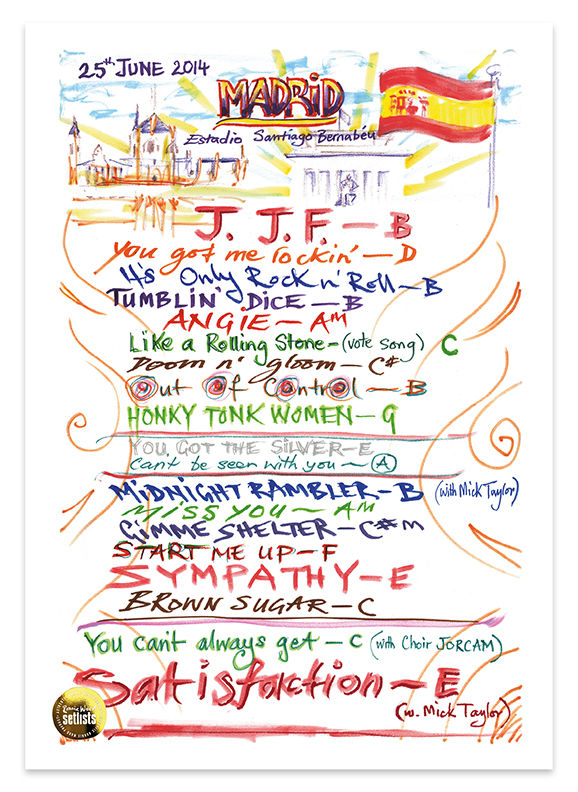 25th JUNE 2014
MADRID
Estadio Santiago Bernabéu
J. J. F. – B
You got me rockin' – D
It's Only Rock n' Roll – B
TUMBLIN' DICE – B
ANGIE – Am
Like a Rolling Stone – (vote song) C
Doom n' gloom – C#
Out Of Control – B
HONKY TONK WOMEN – G
YOU GOT THE SILVER – E
Can't be seen with you – A
MIDNIGHT RAMBLER – B (with Mick Taylor)
MISS YOU – Am
GIMME SHELTER – C#m
START ME UP – F
SYMPATHY – E
BROWN SUGAR – C
You can't always get – C (with Choir JORCAM)
Satisfaction – E
(w. Mick Taylor)
Ronnie Wood
setlists